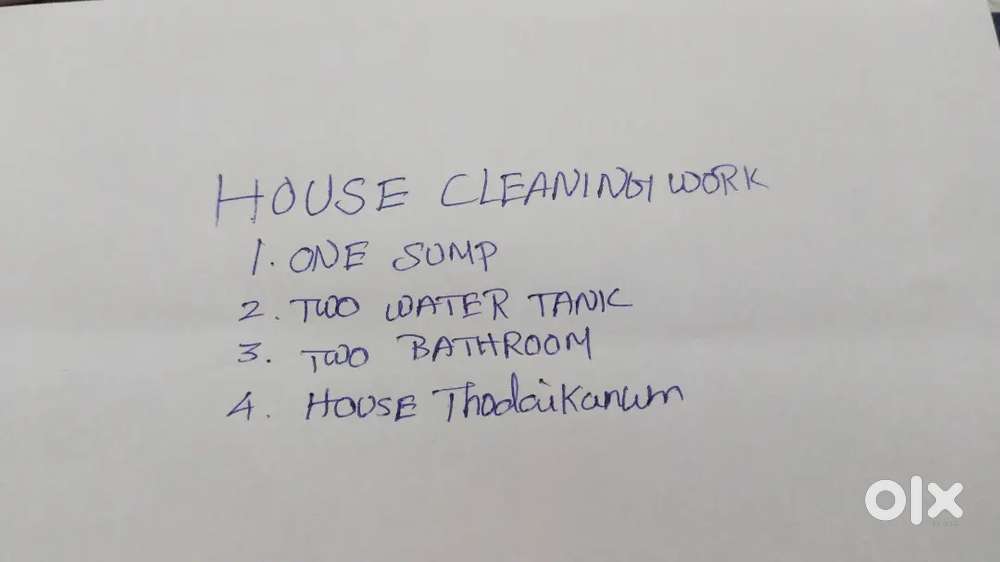 HOUSE CLEANING WORK
1. ONE SUMP
2. TWO WATER TANK
3. TWO BATHROOM
4. HOUSE Thodaikanum
olx